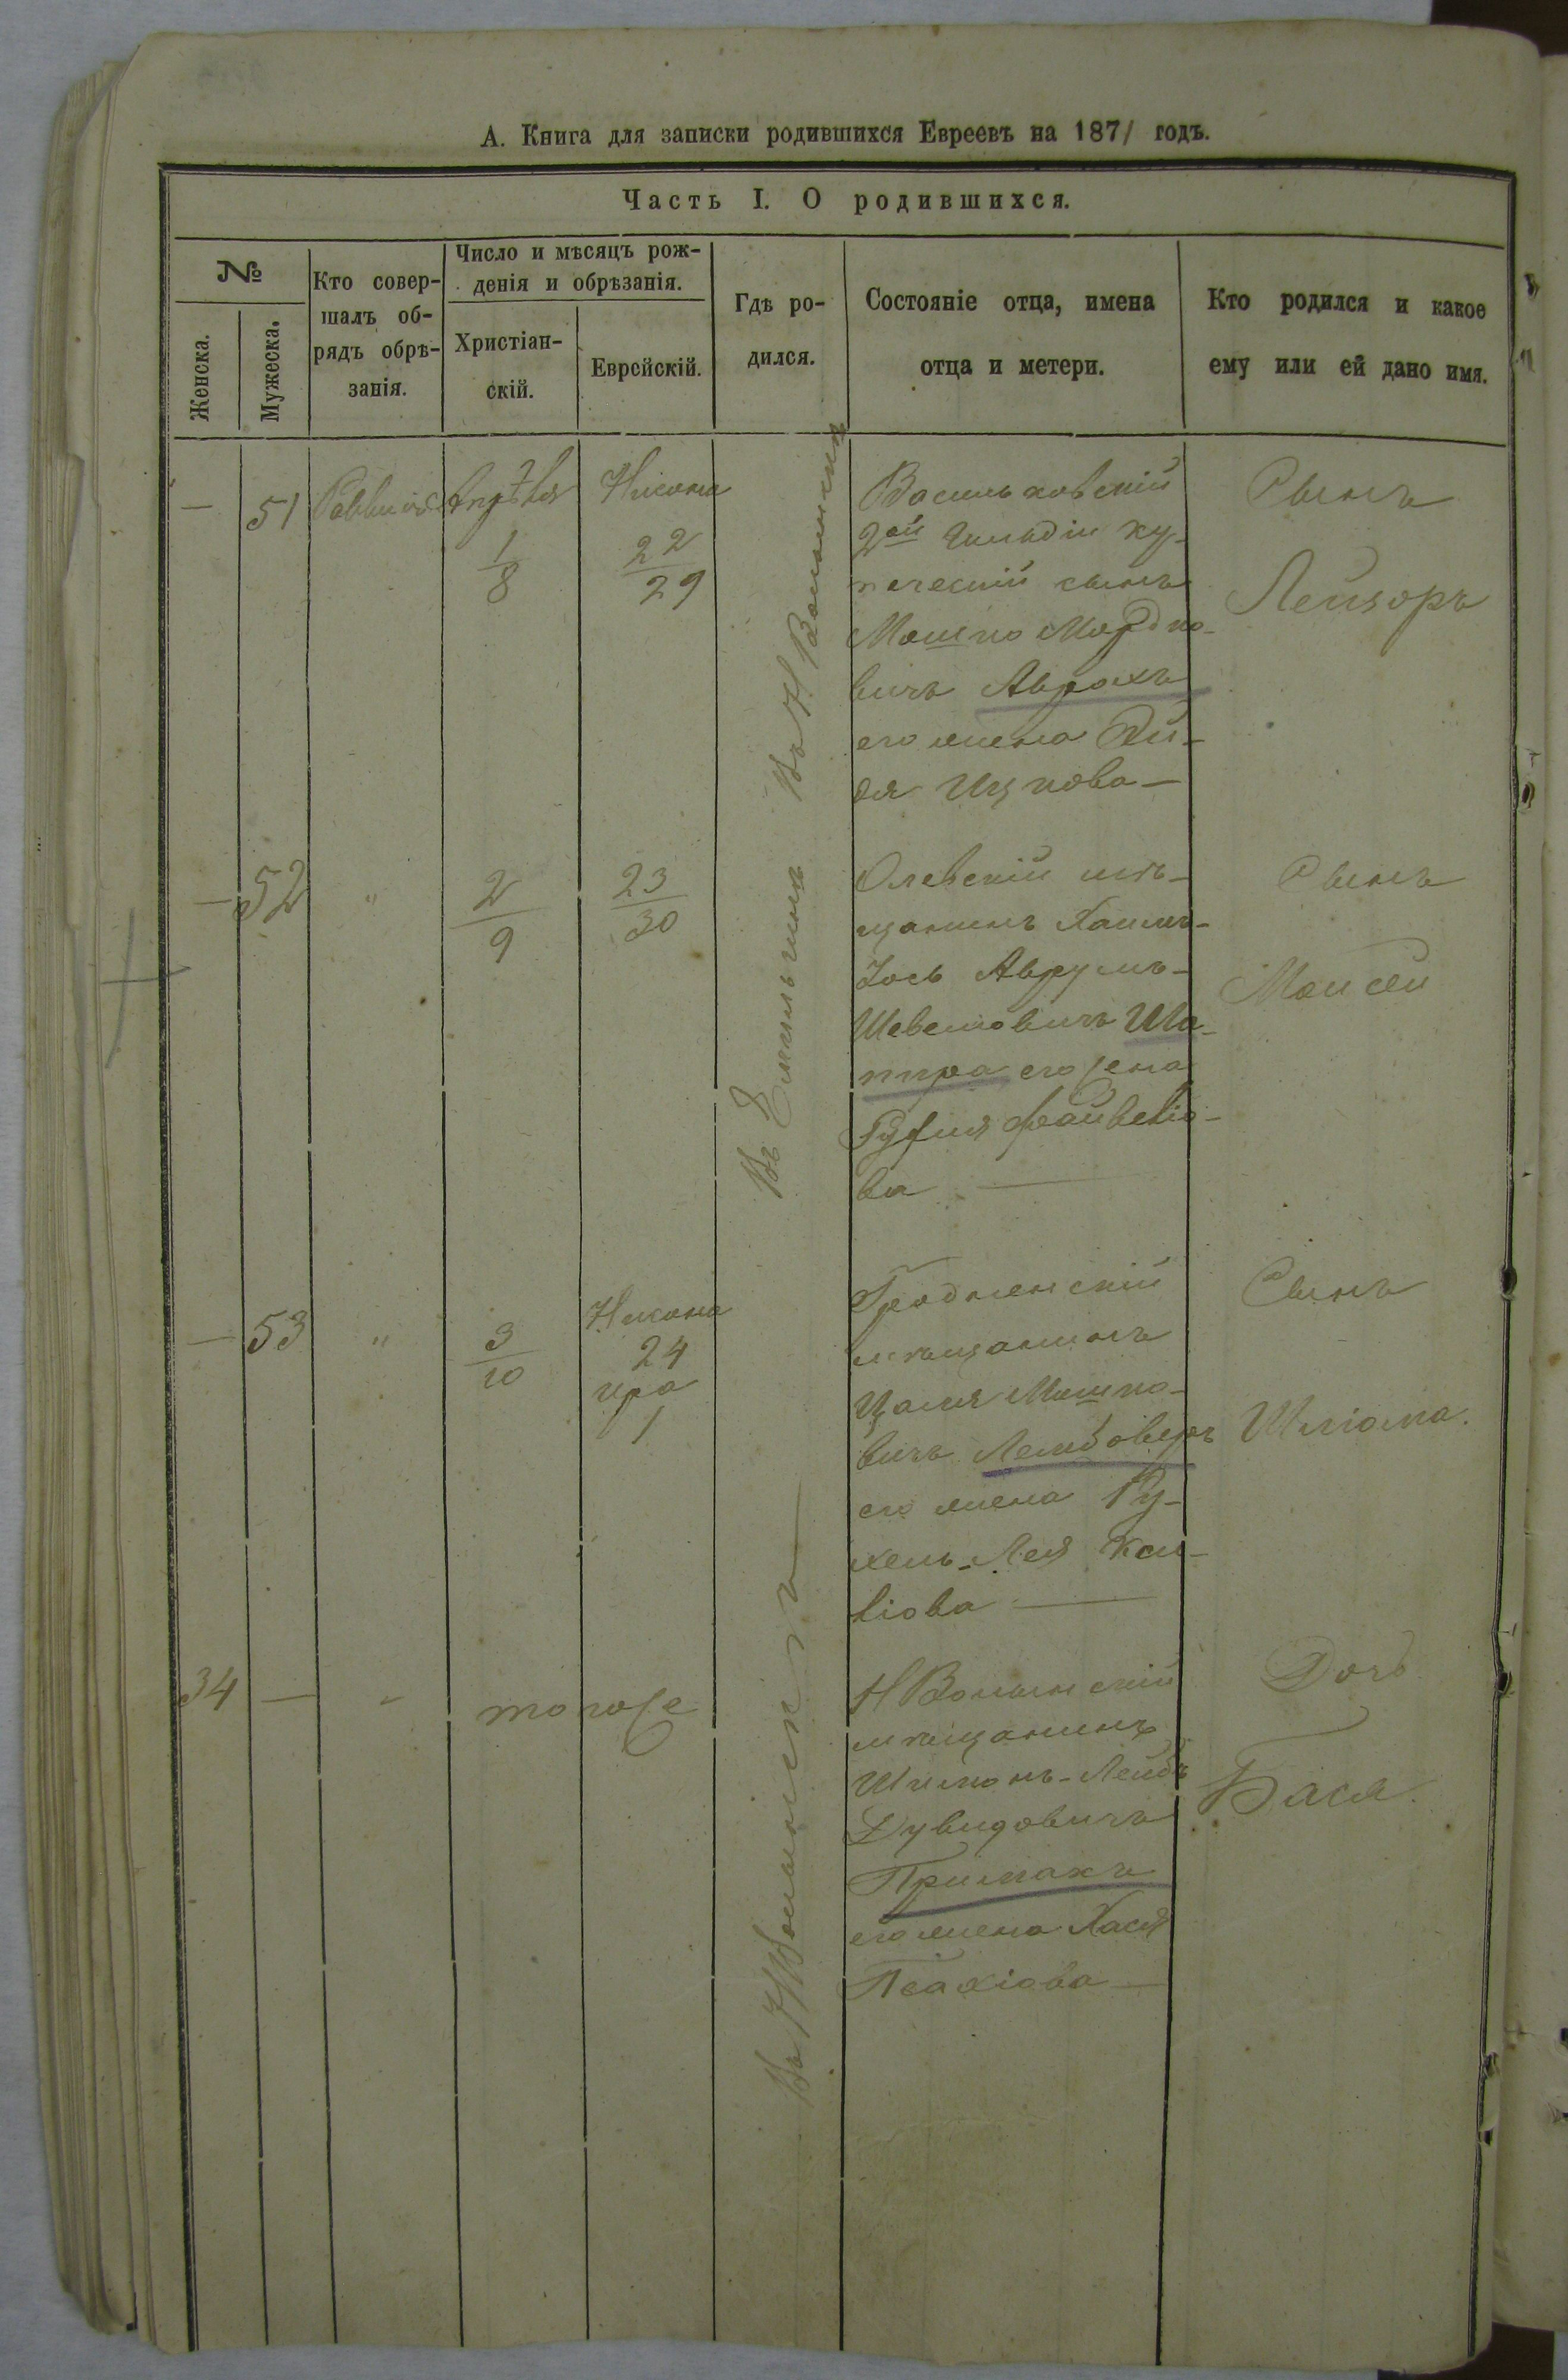 А. Книга для записки родившихся Евреевъ на 1871 годъ.
Часть I. О родившихся.
№
Женска.
Мужеска.
Кто совер-
шалъ об-
рядъ обрѣ-
занія.
Число и мѣсяцъ рож-
денія и обрѣзанія.
Христіан-
скій.
Еврейскій.
Гдѣ ро-
дился.
Состояніе отца, имена
отца и метери.
Кто родился и какое
ему или ей дано имя.
— 51
Апрѣля
1
8
Нисона
22
29
Въ Н Волынскѣ
Васильковскій
2ой Гильдіи ку-
печескій сынъ
Мошко Мордко-
вичъ Аврахъ
его жена Эй-
дя Ицкова —
Сынъ
Лейзоръ
— 52
"
2
9
23
30
Въ
Олевскій мѣ-
щанинъ Хаимъ-
Іось Аврумъ-
Шевелювичъ Ша-
пира его жена
Файвелiо-
ва —
Сынъ
Моисей
— 53
"
3
10
Нисона
24
ира
1
Гродненскій
мѣщанинъ
Цаля Мошко-
вичъ
его жена Ру-
хель-Лея
Сынъ
Шліома.
34 —
-
тоже
Въ Н Волынскѣ —
Н Волынскій
мѣщанинъ
Шимонъ-Лейбъ
Дувидовичъ
Примакъ
его жена Хася
Псахіова —
Дочь
Бася.